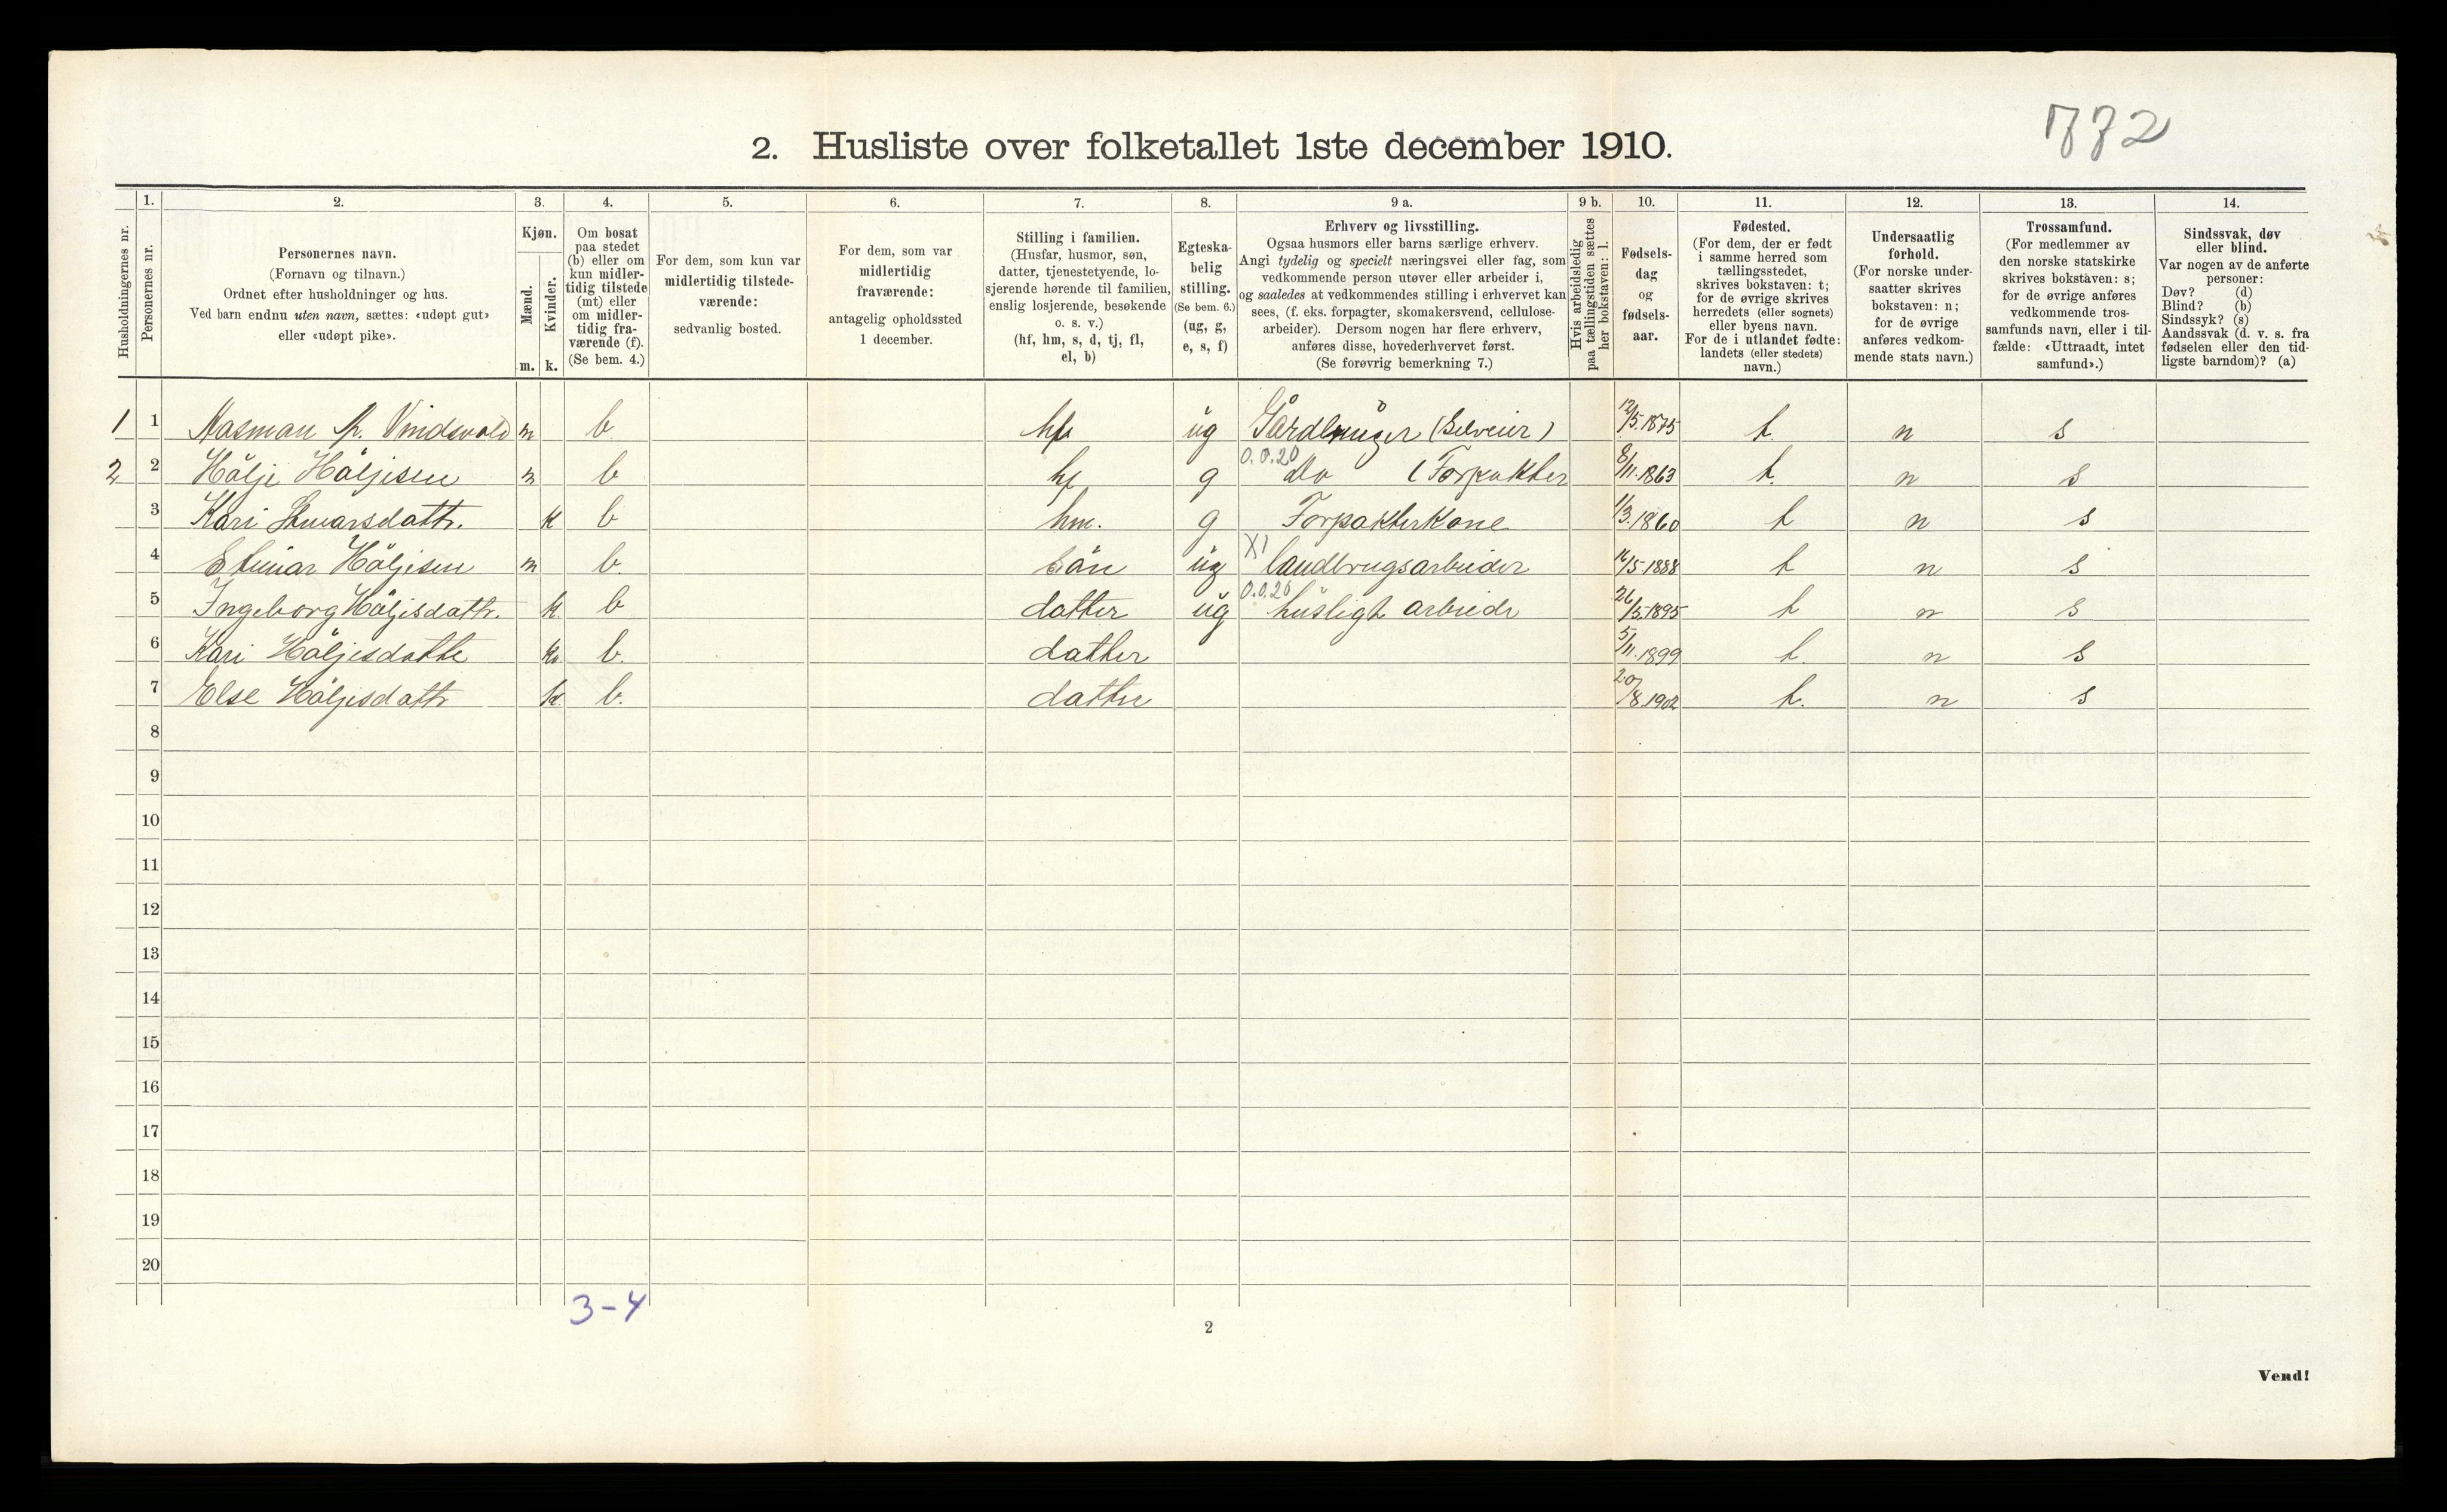 772
2. Husliste over folketallet 1ste december 1910.
1. 2. 3. 4. 5. 6. 7. 8. 9 a. 9 b. 10. 11. 12. 13. 14.
Husholdningernes nr.
Personernes nr.
Personernes navn.
(Fornavn og tilnavn.)
Ordnet efter husholdninger og hus.
Ved barn endnu uten navn, sættes: «udøpt gut»
eller «udøpt pike».
Kjøn.
Mænd.
Kvinder.
m. k.
Om bosat
paa stedet
(b) eller om
kun midler-
tidig tilstede
(mt) eller
om midler-
tidig fra-
værende (f).
(Se bem. 4.)
For dem, som kun var
midlertidig tilstede-
værende:
sedvanlig bosted.
For dem, som var
midlertidig
fraværende:
antagelig opholdssted
1 december.
Stilling i familien.
(Husfar, husmor, søn,
datter, tjenestetyende, lo-
sjerende hørende til familien,
enslig losjerende, besøkende
o. s. v.)
(hf, hm, s, d, tj, fl,
el, b)
Egteska-
belig
stilling.
(Se bem. 6.)
(ug, g,
e, s, f)
Erhverv og livsstilling.
Ogsaa husmors eller barns særlige erhverv.
Angi tydelig og specielt næringsvei eller fag, som
vedkommende person utøver eller arbeider i,
og saaledes at vedkommendes stilling i erhvervet kan
sees, (f. eks. forpagter, skomakersvend, cellulose-
arbeider). Dersom nogen har flere erhverv,
anføres disse, hovederhvervet først.
(Se forøvrig bemerkning 7.)
Hvis arbeidsledig
paa tællingstiden sættes
her bokstaven: l.
Fødsels-
dag
og
fødsels-
aar.
Fødested.
(For dem, der er født
i samme herred som
tællingsstedet,
skrives bokstaven: t;
for de øvrige skrives
herredets (eller sognets)
eller byens navn.
For de i utlandet fødte:
landets (eller stedets)
navn.)
Undersaatlig
forhold.
(For norske under-
saatter skrives
bokstaven: n;
for de øvrige
anføres vedkom-
mende stats navn.)
Trossamfund.
(For medlemmer av
den norske statskirke
skrives bokstaven: s;
for de øvrige anføres
vedkommende tros-
samfunds navn, eller i til-
fælde: «Uttraadt, intet
samfund».)
Sindssvak, døv
eller blind.
Var nogen av de anførte
personer:
Døv? (d)
Blind? (b)
Sindssyk? (s)
Aandssvak (d. v. s. fra
fødselen eller den tid-
ligste barndom)? (a)
1 1 Aasman P. Vindsvold m b hf ug Gårdbruger (Selveier) 12/5.1875 t. n s
2 2 Hölje Höljesen m b hf g 0.0.20 Do (Forpakter 8/11.1863 t. n s
3 Kari Stenarsdattr. k b hm. g Forpakterkone 1/3.1860 t n s
4 Steinar Höljesen m b sön ug X1 landbrugsarbeider 16/5.1888 t n s
5 Ingeborg Höljesdattr. k. b datter ug 0.0.20 husligt arbeide 26/5.1895 t n s
6 Kari Höljesdatte k. b. datter 5/11.1899 t. n s
7 Else Höljesdattr k. b. datter 20/8.1902 t. n s
8
9
10
11
12
13
14
15
16
17
18
19
20
3-4
2
Vend!